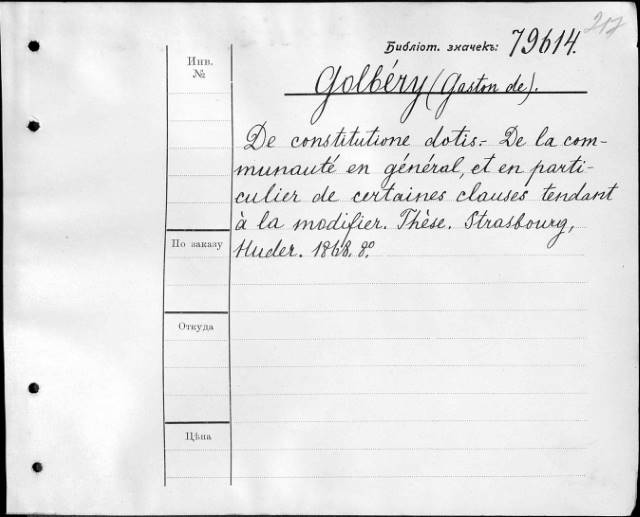 212
Библіот. значекъ: 79614.
Инв.
№
Golbéry (Gaston de).
De constitutione dotis.- De la com-
munauté en général, et en parti-
culier de certaines clauses tendant
à la modifier. Thèse. Strasbourg,
Huder. 1868. 8º.
По заказу
Откуда
Цѣна